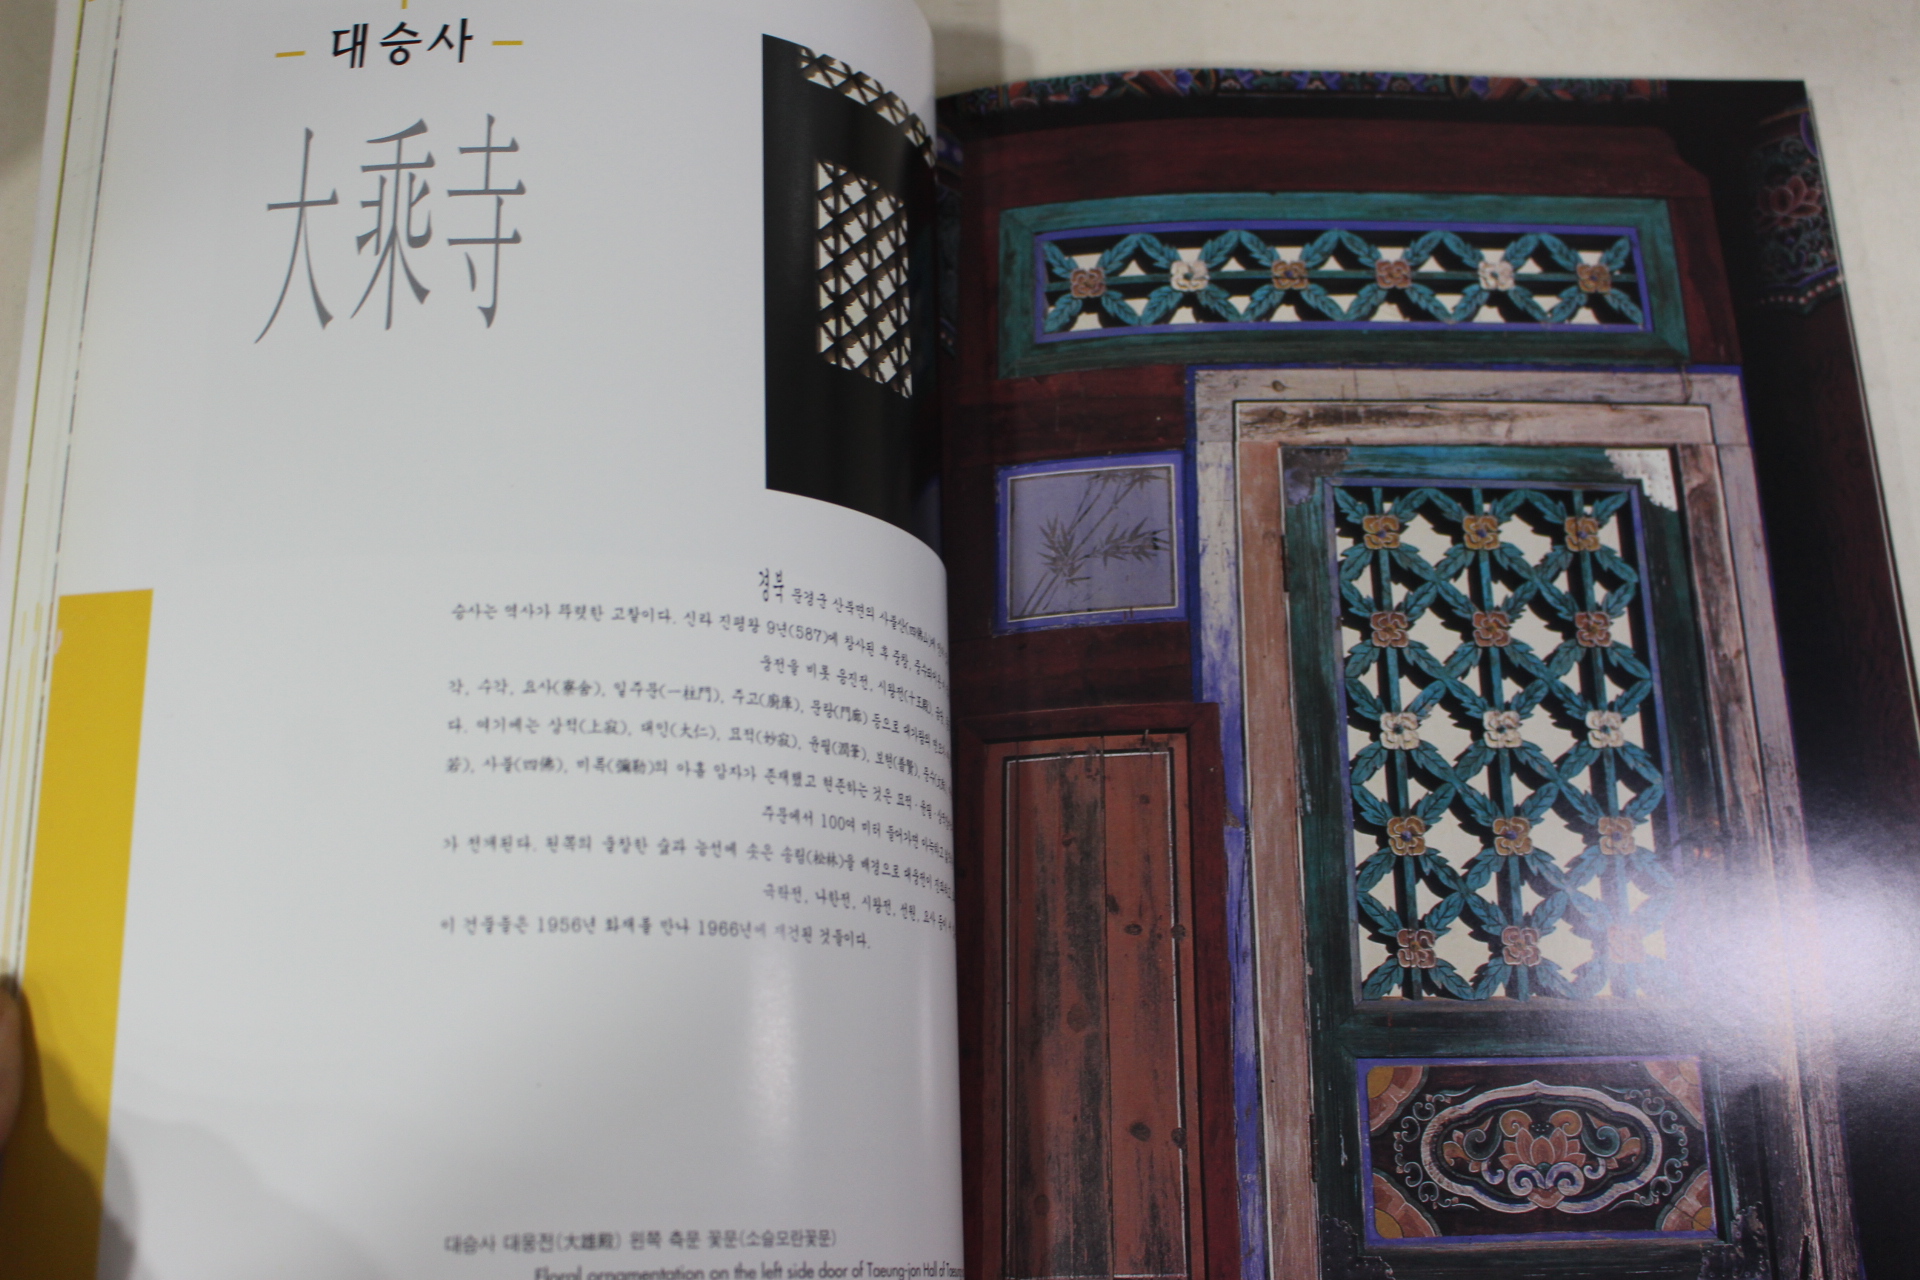 대승사
大乘寺
경북 문경군 산북면의 사불산(四佛山)에
승사는 역사가 뚜렷한 고찰이다. 신라 진평왕 9년(587)에 창사된 후 중창, 중수되어
웅전을 비롯 응진전, 시왕전(十王殿),
각, 수각, 요사(寮舍), 일주문(一柱門), 주고(廚庫), 문랑(門廊) 등으로 대가람의
다. 여기에는 상적(上寂), 대인(大仁), 묘적(妙寂), 윤필(潤筆), 보현(普賢),
若), 사불(四佛), 미륵(彌勒)의 아홉 암자가 존재했고 현존하는 것은 묘적·윤필·
주문에서 100여 미터 들어가면
가 전개된다. 왼쪽의 울창한 숲과 능선에 솟은 송림(松林)을 배경으로 대웅전이
극락전, 나한전, 시왕전, 선원, 요사 등이
이 건물들은 1956년 화재를 만나 1966년에 재건된 것들이다.
대승사 대웅전(大雄殿) 왼쪽 측문 꽃문(소슬모란꽃문)
Floral ornamentation on the left side door of Taeung-jon Hall of